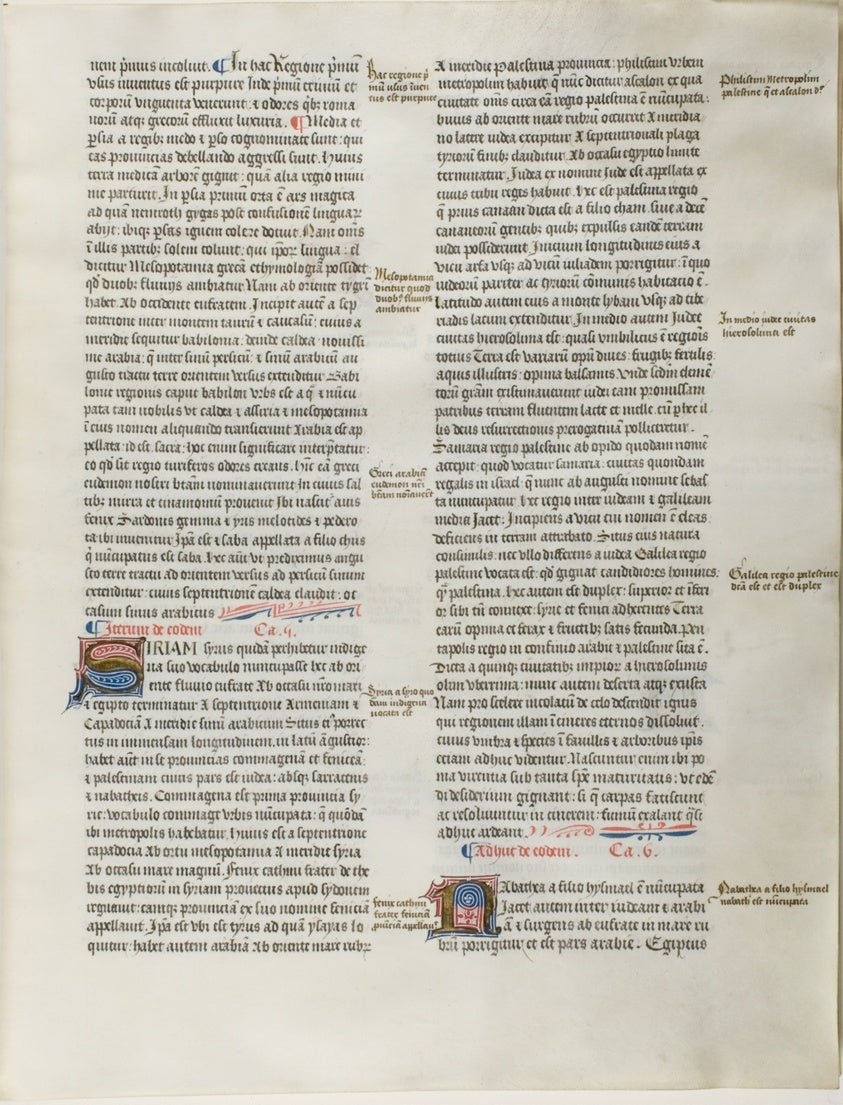 nem p̄mus incoluit. ¶ In hac Regione p̄mū
vsus inuentus est purpure Inde p̄mū criniū et
corporū vnguenta venerunt ⁊ odores qb; roma
norū atq; grecorū effluxit luxuria. ¶ Media et
ꝑsia a regib; medo ⁊ ꝑso cognominate sunt: qui
eas prouincias debellando aggressi sunt. Huius
terra medicā arborē gignit: quā alia regio mini
me parturit. In ꝑsia primū orta ē ars magica
ad quā nemroth gygas post confusionē linguaꝝ
abijt: ibiq; ꝑsas ignem colere docuit. Nam oīns
ī illis partib; solem colunt: qui ip̄oꝝ lingua: el
dicitur Mesopotamia grecā ethymologiā possidet
qd̄ duob; fluuijs ambiatur Nam ab oriente tygrī
habet. Ab occidente eufratem. Incipit autē a sep
tentrione inter montem taurū ⁊ caucasū: cuius a
meridie sequitur babilonia. deinde caldea. nouissi
me arabia: q̄ inter sinū persicū: ⁊ sinū arabicū au
gusto tractu terre orientem versus extenditur Babi
lonie regionis caput babilon vrbs est a q̄ ⁊ nūcu
pata tam nobilis vt caldea ⁊ assiria ⁊ mesopotamia
ī eius nomen aliquando transierint Arabia est ap
pellata. id est. sacra: hoc enim significare interp̄tatur:
eo qd̄ sit regio turiferos odores creans. hīc eā greci
eudemon nostri btām nominauerunt In cuius sal
tib; mirra et cinamomū prouenit Ibi nascit᷑ auis
fenix Sardonis gemma ⁊ yris melotides ⁊ pedero
ta ibi inuenitur Ip̄a est ⁊ saba appellata a filio chus
q̄ nūcupatus est saba. hec aūt vt prediximus angu
sto terre tractu ad orientem versus ad persicū sinum
extenditur: cuius septentrionē caldea claudit. oc
casum sinus arabicus
¶ Iterum de eodem Ca. 5.
SIRIAM syrus quidā perhibetur indige
na suo vocabulo nuncupasse hec ab ori
ente fluuio eufrate Ab occasu nr̄o mari
⁊ egipto terminatur A septentrione Armeniam ⁊
Capadociā A meridie sinū arabicum Situs ei᷑ porrec
tus in immensam longitudinem. in latū āgustior:
habet aūt in se prouincias commagenā et feniceā
⁊ palestinam cuius pars est iudea: absq; sarracenis
⁊ nabatheis. Commagena est prima prouincia sy
rie: vocabulo commage vrbis nūcupata: q̄ quōdā
ibi metropolis habebatur. huius est a septentrione
capadocia Ab ortu mesopotamia A meridie syria
Ab occasu mare magnū. Fenix cathmi frater de the
bis egyptiorū in syriam prouectus apud sydonem
regnauit: eamq; prouinciā ex suo nomine feniciā
appellauit. Ip̄a est vbi est tyrus ad quā ysayas lo
quitur: habet autem arabiā Ab oriente mare rubꝝ
Hac regione p̄
mū usus īuen
tus est purpure
Mesopotamia
dicitur quod
duob; fluuijs
ambiatur
Greci arabiā
eudemon nr̄i
btām noīauerēt
Syria a syro quo
dam indigena
uocata est
fenix cathmi
frater feniciā
ꝓuīciā appellau᷑
A meridie Palestina prouincia: philistim vrbem
metropolim habuit q̄ nūc dicitur ascalon ex qua
ciuitate oīns circa eā regio palestina ē nūcupata:
huius ab oriente mare rubrū occurrit A meridia
no latere iudea excipitur A septentrionali plaga
tyriorū finib; clauditur. Ab occasu egyptio limite
terminatur. Iudea ex nomine Iude est appellata ex
cuius tribu reges habuit. hec est palestina regio
q̄ prius canaan dicta est a filio cham. siue a decē
cananeorū gentib; quib; expulsis eandē terram
iudei possiderunt. Inicium longitudinis eius a
vicu arfa vsq; ad vicū iuliadem porrigitur: ī quo
iudeorū pariter ac tyriorū cōmunis habitacio ē.
latitudo autem eius a monte lybani vsq; ad tibe
riadis lacum extenditur. In medio autem Iudee
ciuitas hierosolima est: quasi vmbilicus ē regiōis
totius Terra est variarū opū diues: frugib; fertilis:
aquis illustris: opima balsamis Vnde scdm elemē
torū grām extimauerunt iudei eam promissam
patribus terram fluentem lacte et melle. cū ꝑhec il
lis deus resurrectionis prerogatiuā polliceretur.
Samaria regio palestine ab opido quodam nomē
accepit: quod vocatur samaria: ciuitas quondam
regalis in israel. q̄ nunc ab augusti nomine sebas
ta nuncupatur. hec regio inter iudeam ⁊ galileam
media Jacet: Incipiens a vicu cui nomen ē eleas
deficiens in terram attrabato. Situs eius natura
consimilis: nec vllo differens a iudea Galilea regio
palestine vocata est: qd̄ gignat candidiores homines:
qͣ̄ palestina. hec autem est duplex: superior et īferi
or sibi tū connexe: syrie et fenici adherentes Terra
earū opima et ferax ⁊ fructib; satis fecunda. Pen
tapolis regio in confinio arabie ⁊ palestine sita ē.
Dicta a quinq; ciuitatib; impioꝝ a hierosolimis
olim vberrima: nunc autem deserta atq; exusta
Nam pro scelere incolarū de celo descendit ignis
qui regionem illam ī cineres eternos dissoluit.
cuius vmbra ⁊ species ī fauillis ⁊ arboribus ip̄is
eciam adhuc videntur. Nascuntur enim ibi po
ma virencia sub tanta spē maturitatis: vt edē
di desiderium gignant: si q̄ carpas fatiscunt
ac resoluuntur in cinerem: fumū exalant q̄si
adhuc ardeant.
¶ Adhuc de eodem. Ca. 6.
Nabathea a filio hysmael ē nūcupata
Jacet autem inter iudeam ⁊ arabi
ā ⁊ surgens ab eufrate in mare ru
brū porrigitur. et est pars arabie. Egiptus
Philistim Metropolim
palestine q̄ et ascalon dr̄
In medio iudee ciuitas
hierosolima est
Galilea regio palestine
dc̄a est et est duplex
Nabathea a filio hysmael
nabath est nūcupata